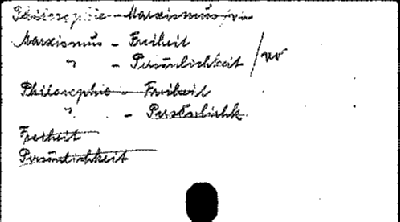 Philosophie - Marxismus
Marxismus - Freiheit
" - Persönlichkeit
Philosophie - Freiheit
" - Persönlichk.
Freiheit
Persönlichkeit